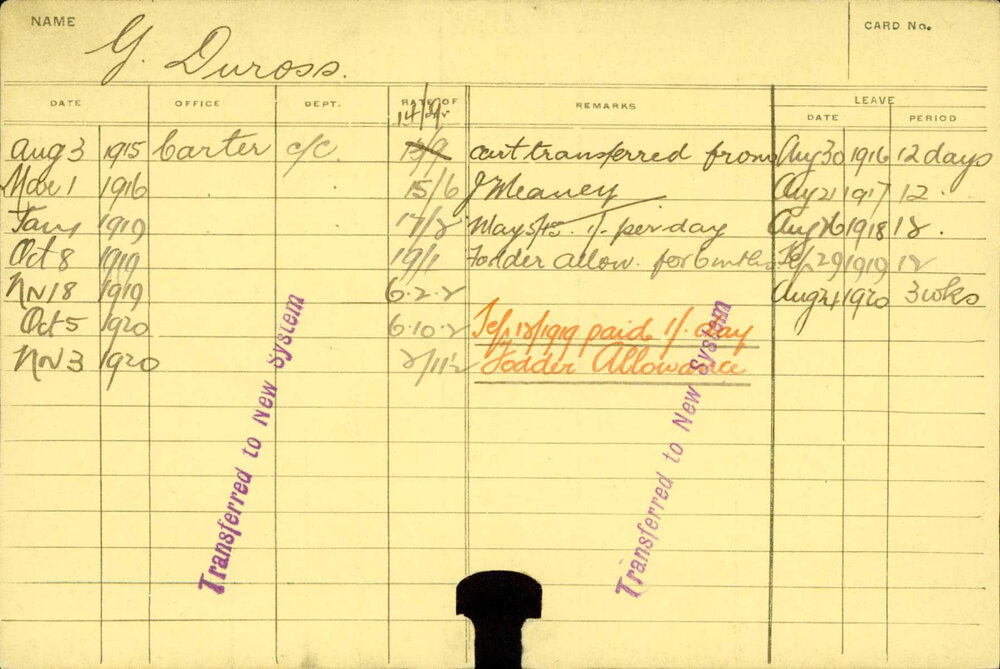 NAME G. Duross. CARD No.
DATE OFFICE DEPT. RATE OF REMARKS LEAVE
DATE PERIOD
14/9
Aug 3 1915 Carter C/C. 13/9 cart transferred from Aug 30 1916 12 days
Mar 1 1916 15/6 J Meaney Aug 21 1917 12 .
Jany 1919 17/2 1/- per day Aug 26 1918 12 .
Oct 8 1919 19/1 Fodder allow. for 6 mths Sep 29 1919 12
Nov 18 1919 6.2.2 Aug 1920 3 wks
Oct 5 1920 6.10.2 Sep 12/1919 paid 1/- day
Nov 3 1920 Fodder Allowance
Transferred to New System
Transferred to New System